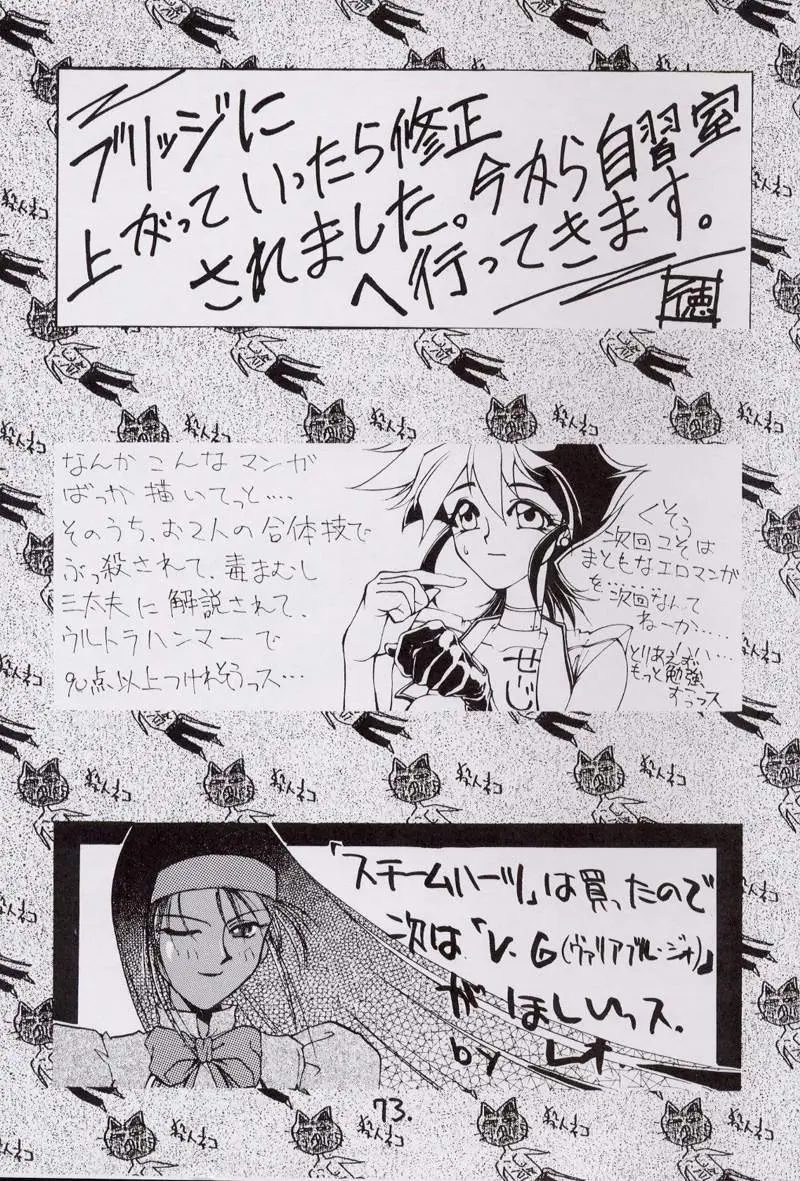 ブリッジに
上がっていったら修正
されました。今から自習室
へ行ってきます。
徳
なんかこんなマンガ
ばっか描いてっと....
そのうち、お2人の合体技で
ぶっ殺されて、毒まむし
三太夫に解説されて、
ウルトラハンマーで
90点以上つけれそうっス…
くそう
次回こそは
まともなエロマンガ
を……
次回なんて
ねーか.....
とりあえず
もっと勉強
すっっス
せーじ
「スチームハーツ」は買ったので
次は「V.G(ヴァリアブル・ジオ)」
がほしいっス.
by レオ.
殺人ネコ
73.